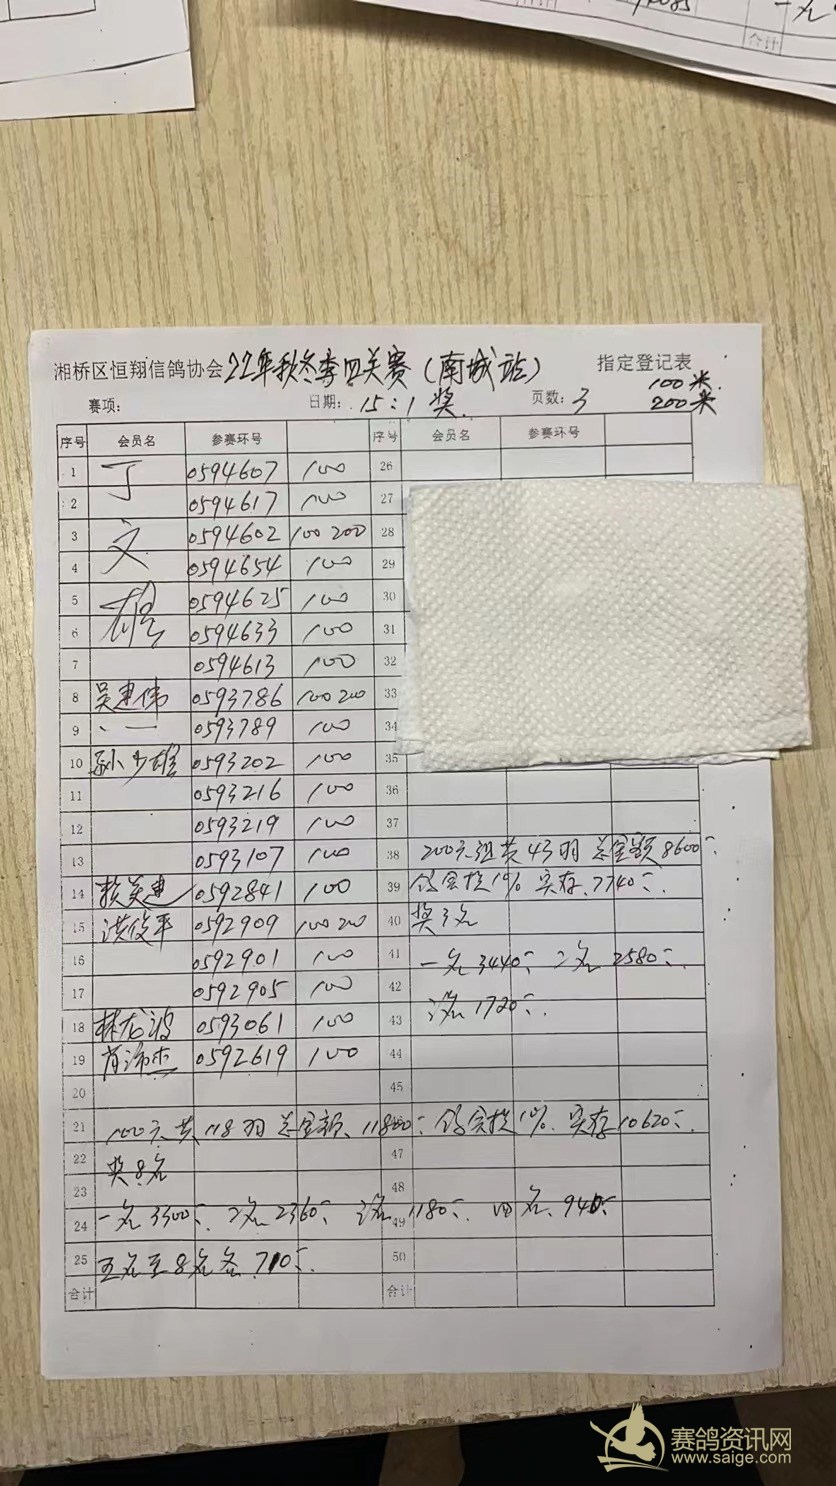 合计
湘桥区恒翔信鸽协会22年秋冬季四关赛(南城站) 指定登记表
赛项: 日期: 15:1奖 页数: 3 100米
200米
序号 会员名 参赛环号 序号 会员名 参赛环号
1 丁 0594607 100 26
2 0594617 100 27
3 文 0594602 100 200 28
4 0594654 100 29
5 雄 0594625 100 30
6 0594633 100 31
7 0594613 100 32
8 吴建伟 0593786 100 200 33
9 0593789 100 34
10 孙少雄 0593202 100 35
11 0593216 100 36
12 0593219 100 37
13 0593107 100 38 200元组共43羽 总金额8600
14 0592841 100 39 协会提10% 实存 7740
15 洪俊平 0592909 100 200 40 奖3名
16 0592901 100 41 一名3440 二名2580
17 0592905 100 42
18 林龙波 0593061 100 43 三名1720
19 0592619 100 44
20 45
21 100元共118羽 总金额 11800 协会提10% 实存10620
22 奖8名 47
23 48
24 一名3300 二名2360 三名1180 四名 940 49
25 五名至8名各 710 50
合计 合计
赛鸽资讯网
www.saige.com